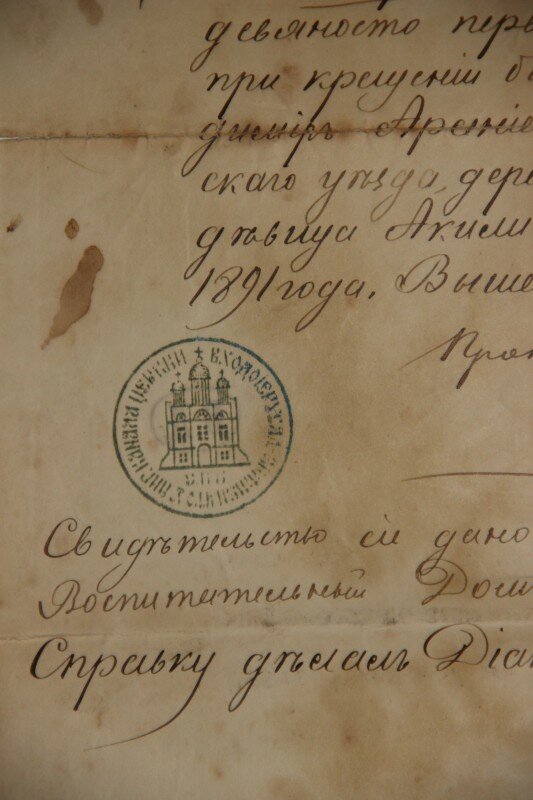 девяносто пер
при крещеніи б
димиръ Арсеніе
скаго уѣзда, дере
дѣвица Акили
1891 года. Выше
Про
ЦЕРКВИ ВХОДОІЕРУСАЛ
Свидѣтельство сіе дано
Воспитательный Дом
Справку дѣлалъ Діак